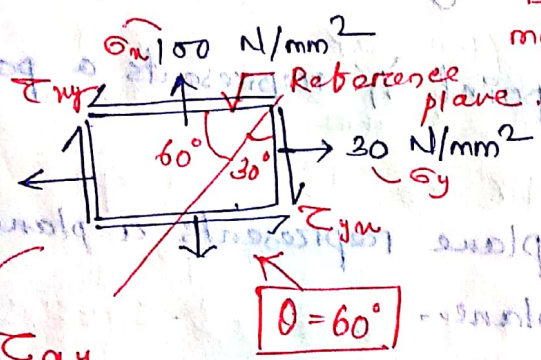 σx 100 N/mm²
τxy
Reference
plane.
60°
30°
30 N/mm²
σy
τyx
θ = 60°
τxy